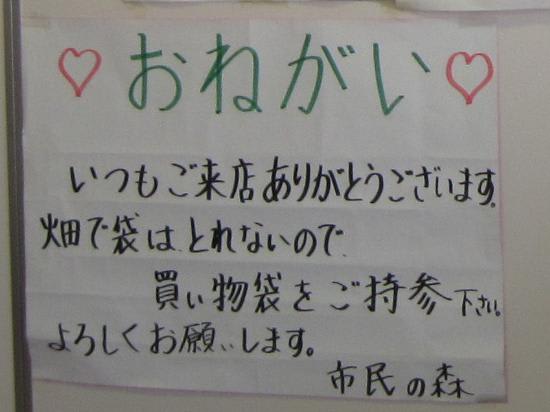 ♡ おねがい ♡
いつもご来店ありがとうございます。
畑で袋は、とれないので、
買い物袋をご持参下さい。
よろしくお願いします。
市民の森